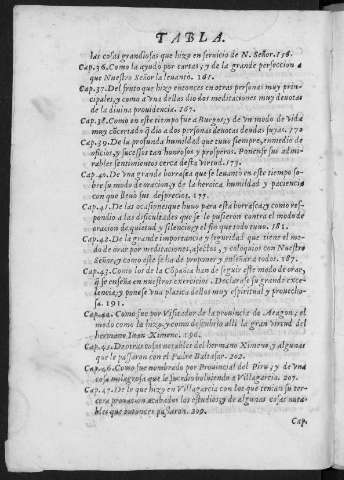 TABLA.
las cosas grandiosas que hizo en seruicio de N. Señor. 156.
Cap. 36. Como la ayudo por cartas, y de la grande perfeccion a
que Nuestro Señor la leuanto. 161.
Cap. 37. Del fruto que hizo entonces en otras personas muy prin-
cipales, y como a vna dellas dio dos meditaciones muy deuotas
de la diuina prouidencia. 167.
Cap. 38. Como en este tiempo fue a Burgos, y de vn modo de vida
muy cõcertado q̃ dio a dos personas deuotas deudas suyas. 172
Cap. 39. De la profunda humildad que tuuo siempre, en medio de
oficios, y sucessos tan honrosos y prosperos. Ponense sus admi-
rables sentimientos cerca desta virtud. 173.
Cap. 40. De vna grande borrasca que se leuantò en este tiempo so-
bre su modo de oracion, y de la heroica humildad y paciencia
con que lleuò sus desprecios. 177.
Cap. 41. De las ocasiones que huuo para esta borrasca, y como res-
pondio a las dificultades que se le pusieron contra el modo de
oracion de quietud y silencio; y el fin que todo tuuo. 181.
Cap. 42. De la grande importancia y seguridad que tiene el mo-
do de orar por meditaciones, afectos, y coloquios con Nuestro
Señor, y como este se ha de proponer y enseñar a todos. 187.
Cap. 43. Como los de la Cõpañia han de seguir este modo de orar,
q̃ se enseña en nuestros exercicios. Declarase su grande exce-
lencia, y ponese vna platica dellos muy espiritual y prouecho-
sa. 191.
Cap. 44. Como fue por Visitador de la prouincia de Aragon; el
modo como la hizo, y como descubrio alli la gran virtud del
hermano Iuan Ximeno. 196.
Cap. 45. De otras cosas notables del hermano Ximeno, y algunas
que le passaron con el Padre Baltasar. 202.
Cap. 46. Como fue nombrado por Prouincial del Piru; y de vna
cosa milagrosa que le sucedio boluiendo a Villagarcia. 207.
Cap. 47. De lo que hizo en Villagarcia con los que tenian su ter-
cera prouacion acabados los estudios; y de algunas cosas nota-
bles que entonces passaron. 209.
Cap.